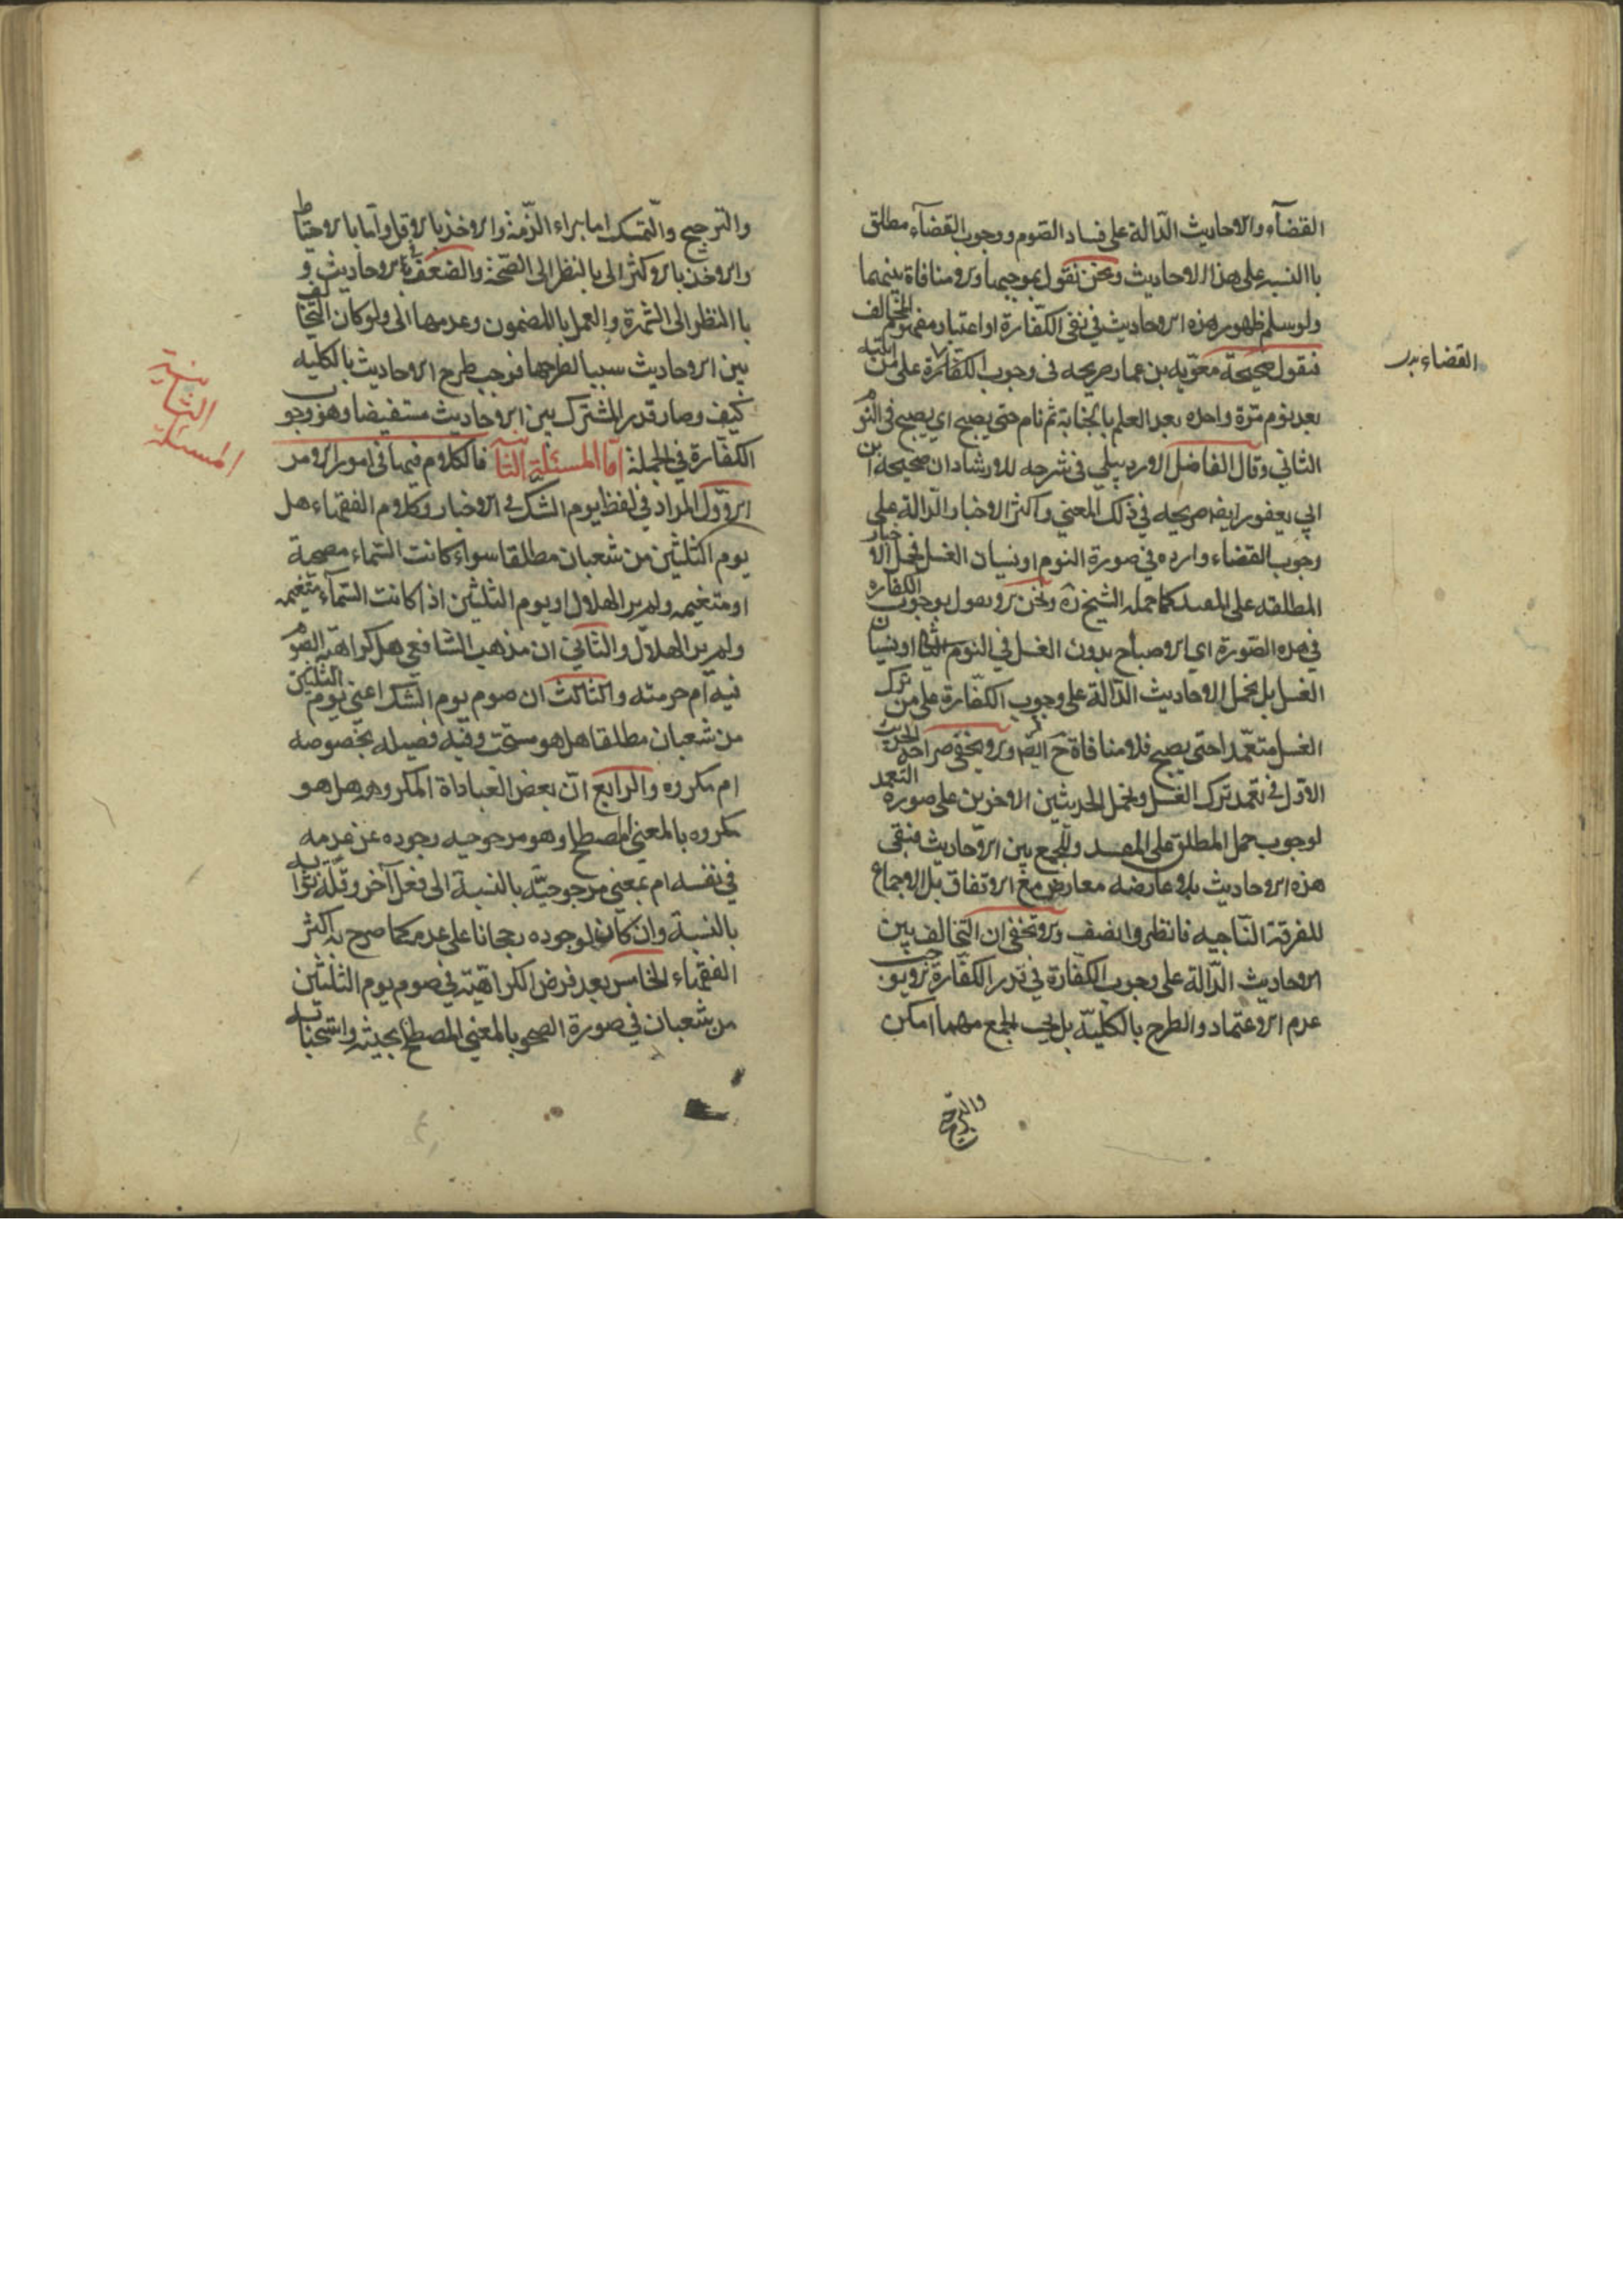 القضآء والاحاديث الدّالة على فساد الصّوم ووجوب القضآء مطلق
باالنسبه على هذا الاحاديث ونحن نقول بموجبها ولا منافاة بينهما
ولو سلم ظهور هذه الاحاديث في نفى الكفّارة او اعتبار مفهوم المخالف
فنقول صحيحة معوّيه بن عمار صريحه في وجوب الكفّارة على من انتبه
بعد نوم مرّة واحده بعد العلم بالجنابة ثم نام حتى يصبح اي يصبح في النوم
الثاني وقال الفاضل الاردبيلي في شرحه للارشاد ان صحيحة ابن
ابي يعفور ايضا صريحه في ذلك المعني واكثر الاخبار الدّالة على
وجوب القضاء وارده في صورة النوم او نسيان الغسل فحمل الاخبار
المطلقه على المقيد كما حمله الشيخ ره ونحن لا نقول بوجوب الكفاره
في هذه الصّورة اي الاصباح بدون الغسل في النوم او نسيان
الغسل بل نحمل الاحاديث الدّالة على وجوب الكفّارة على من ترك
الغسل متعمّدا حتى يصبح فلا منافاة ح ايضا ولا يخفى صراحة الحديث
الاوّل في تعمّد ترك الغسل ونحمل الحديثين الاخرين على صورة التعمد
لوجوب حمل المطلق على المقيد وللجمع بين الاحاديث فبقى
هذه الاحاديث بلا عارضه معارض مع الاتفاق بل الاجماع
للفرقة النّاجيه فانظر وانصف ولا تخفى ان التخالف بين
الاحاديث الدّالة على وجوب الكفّارة في قدر الكفّارة لا يوجب
عدم الاعتماد والطرح بالكليّة بل يجب الجمع مهما امكن
والترجيح
القضاء
والترجيح والتّمسك اما ببراء الذّمة والاخذ بالاقل واما بالاحتياط
والاخذ بالاكثر الى بالنظر الى الصّحة والضعف بالاحاديث و
باالنظر الى الثمرة والعمل باالمضمون وعدمها الى ولو كان التخالف
بين الاحاديث سببا لطرحها فوجب طرح الاحاديث بالكليه
كيف وصار قدر المشترك بين الاحاديث مستفيضا وهو وجوب
الكفّارة في الجملة امّا المسئلة الثانية فالكلام فيها في امور الامر
الاوّل المراد في لفظ يوم الشك في الاخبار وكلام الفقهاء هل
يوم الثلثين من شعبان مطلقا سواء كانت السّماء مصحية
او متغيمه ولم ير الهلال او يوم الثلثين اذا كانت السّمآء متغيمه
ولم ير الهلال والثاني ان مذهب الشافعي هل كراهة الصوم
فيه ام حرمته والثالث ان صوم يوم الشك اعني يوم الثلثين
من شعبان مطلقا هل هو مستحب وفيه فضيله بخصوصه
ام مكروه والرابع انّ بعض العباداة المكروهه هل هو
مكروه بالمعني المصطلح وهو مرجوحيه وجوده عن عدمه
في نفسه ام بمعني مرجوحيّته بالنسبة الى فعل آخر وقلّة ثوابه
بالنسبة وان كان لوجوده رجحانا على عدمه كما صرح به اكثر
الفقهاء الخامس بعد فرض الكراهيّة في صوم يوم الثلثين
من شعبان في صورة الصحو بالمعني المصطلح بحيثه واستحبابه
المسئلة الثانية